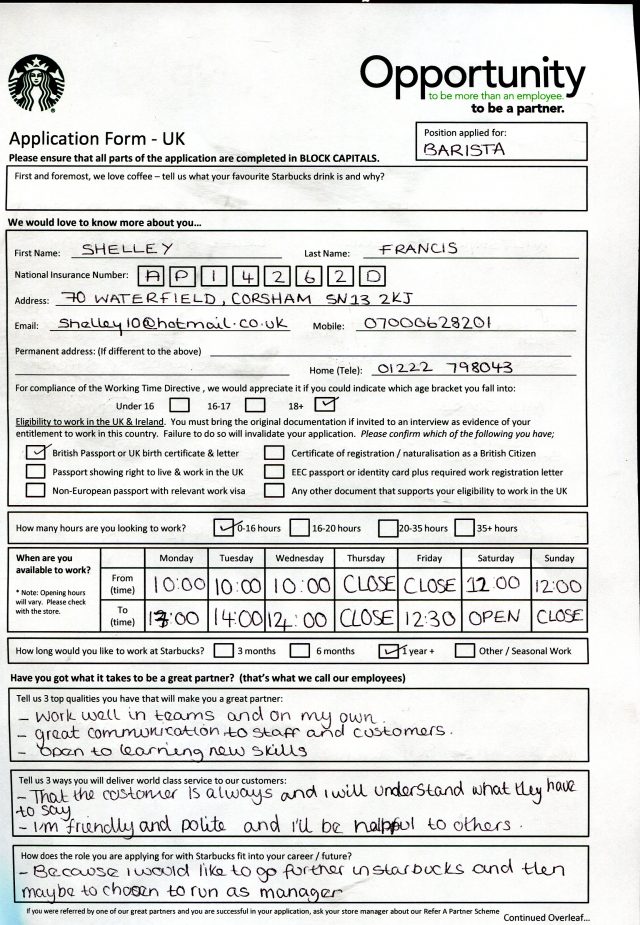 Opportunity
to be more than an employee.
to be a partner.
Application Form - UK
Please ensure that all parts of the application are completed in BLOCK CAPITALS.
Position applied for:
BARISTA
First and foremost, we love coffee – tell us what your favourite Starbucks drink is and why?
We would love to know more about you...
First Name: SHELLEY Last Name: FRANCIS
National Insurance Number: A P 1 4 2 6 2 D
Address: 70 WATERFIELD, CORSHAM SN13 2KJ
Email: Shelley10@hotmail.co.uk Mobile: 07000628201
Permanent address: (If different to the above)
Home (Tele): 01222 798043
For compliance of the Working Time Directive , we would appreciate it if you could indicate which age bracket you fall into:
Under 16 16-17 18+
Eligibility to work in the UK & Ireland. You must bring the original documentation if invited to an interview as evidence of your
entitlement to work in this country. Failure to do so will invalidate your application. Please confirm which of the following you have;
British Passport or UK birth certificate & letter Certificate of registration / naturalisation as a British Citizen
Passport showing right to live & work in the UK EEC passport or identity card plus required work registration letter
Non-European passport with relevant work visa Any other document that supports your eligibility to work in the UK
How many hours are you looking to work? 0-16 hours 16-20 hours 20-35 hours 35+ hours
When are you available to work? Monday Tuesday Wednesday Thursday Friday Saturday Sunday
* Note: Opening hours will vary. Please check with the store.
From (time) 10:00 10:00 10:00 CLOSE CLOSE 12:00 12:00
To (time) 13:00 14:00 14:00 CLOSE 12:30 OPEN CLOSE
How long would you like to work at Starbucks? 3 months 6 months 1 year + Other / Seasonal Work
Have you got what it takes to be a great partner? (that's what we call our employees)
Tell us 3 top qualities you have that will make you a great partner:
- Work well in teams and on my own.
- great communication to staff and customers.
- Open to learning new skills
Tell us 3 ways you will deliver world class service to our customers:
- That the customer is always and i will understand what they have
to say
- I'm friendly and polite and I'll be helpful to others.
How does the role you are applying for with Starbucks fit into your career / future?
- Because i would like to go further in starbucks and then
maybe to chosen to run as manager
If you were referred by one of our great partners and you are successful in your application, ask your store manager about our Refer A Partner Scheme
Continued Overleaf...